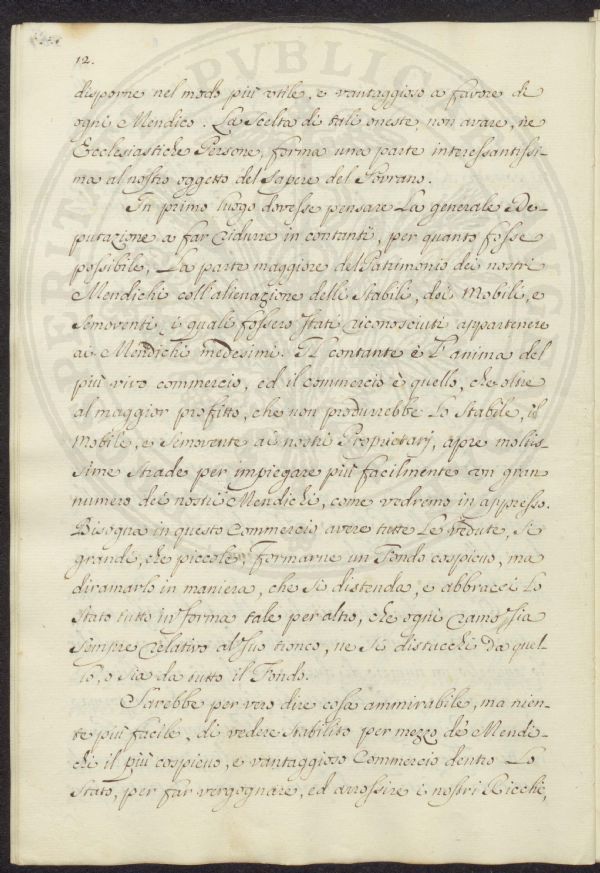 12.
disporne nel modo più utile, e vantaggioso a favore di
ogni Mendico. La Scelta di tali oneste, non avare, nè
Ecclesiastiche Persone, forma una parte interessantissi-
ma al nostro oggetto del Sapere del Sovrano.
In primo luogo dovesse pensare La generale De-
putazione a far ridurre in contanti, per quanto fosse
possibile, La parte maggiore del Patrimonio dei nostri
Mendichi coll'alienazione delli Stabili, dei Mobili, e
Semoventi, i quali fossero stati riconosciuti appartenere
ai Mendichi medesimi. Il contante è l'anima del
più vivo commercio, ed il commercio è quello, che oltre
al maggior profitto, che non produrrebbe Lo Stabile, il
Mobile, e Semovente ai nostri Proprietarj, apre moltis-
sime Strade per impiegare più facilmente un gran
numero dei nostri Mendichi, come vedremo in appresso.
Bisogna in questo Commercio avere tutte Le vedute, sì
grandi, che piccole, formarne un Fondo cospicuo, ma
diramarlo in maniera, che si distenda, e abbracci Lo
Stato tutto in forma tale per altro, che ogni ramo sia
sempre relativo al suo tronco, ne si distacchi da quel-
lo, o sia da tutto il Fondo.
Sarebbe per vero dire cosa ammirabile, ma nien-
te più facile, di vedere stabilito per mezzo de' Mendi-
chi il più cospicuo, e vantaggioso Commercio dentro Lo
Stato, per far vergognare, ed arrossire i nostri Ricchi,
PVBLICA